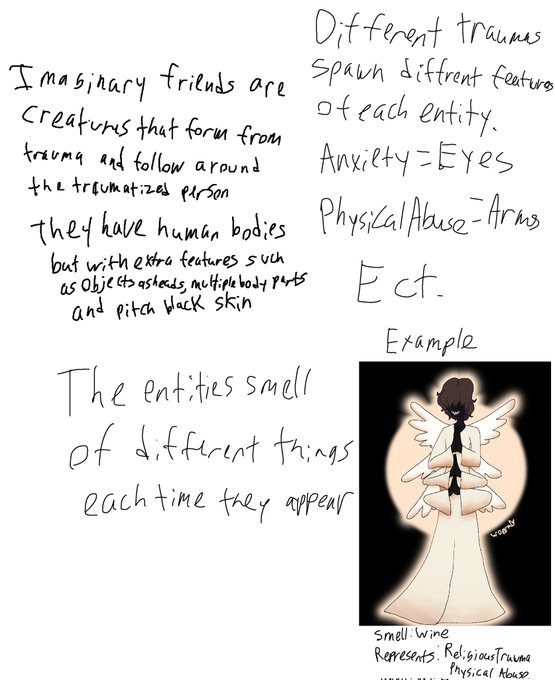 Imaginary friends are
creatures that form from
trauma and follow around
the traumatized person
they have human bodies
but with extra features such
as objects as heads, multiple body parts
and pitch black skin
Different traumas
spawn diffrent features
of each entity.
Anxiety=Eyes
Physical Abuse=Arms
Ect.
The entities smell
of different things
each time they appear
Example
Smell: Wine
Represents: Religious Trauma
Physical Abuse